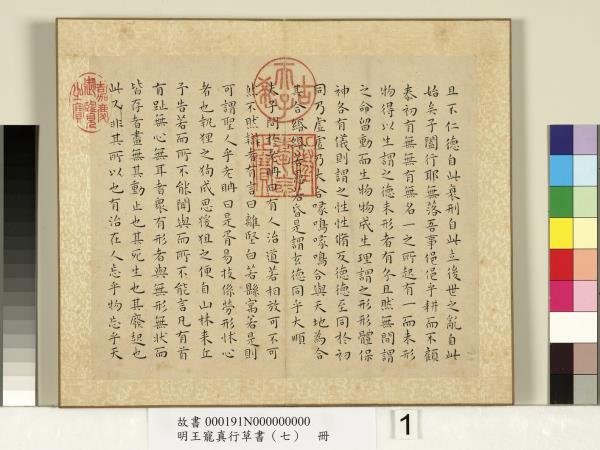 且不仁德自此衰刑自此立後世之亂自此
始矣子闔行耶無落吾事俋俋乎耕而不顧
泰初有無無有無名一之所起有一而未形
物得以生謂之德未形者有分且然無間謂
之命留動而生物物成生理謂之形形體保
神各有儀則謂之性性脩反德德至同於初
同乃虛虛乃大合喙鳴喙鳴合與天地為合
其合緡緡若愚若昏是謂玄德同乎大順
夫子問於老聃曰有人治道若相放可不可
然不然辯者有言曰離堅白若縣寓若是則
可謂聖人乎老聃曰是胥易技係勞形怵心
者也執狸之狗成思猨狙之便自山林來丘
予告若而所不能聞與而所不能言凡有首
有趾無心無耳者衆有形者與無形無狀而
皆存者盡無其動止也其死生也其廢起也
此又非其所以也有治在人忘乎物忘乎天
古稀天子
嘉慶御覽之寶
故書 000191N000000000
明王寵真行草書（七） 冊
1